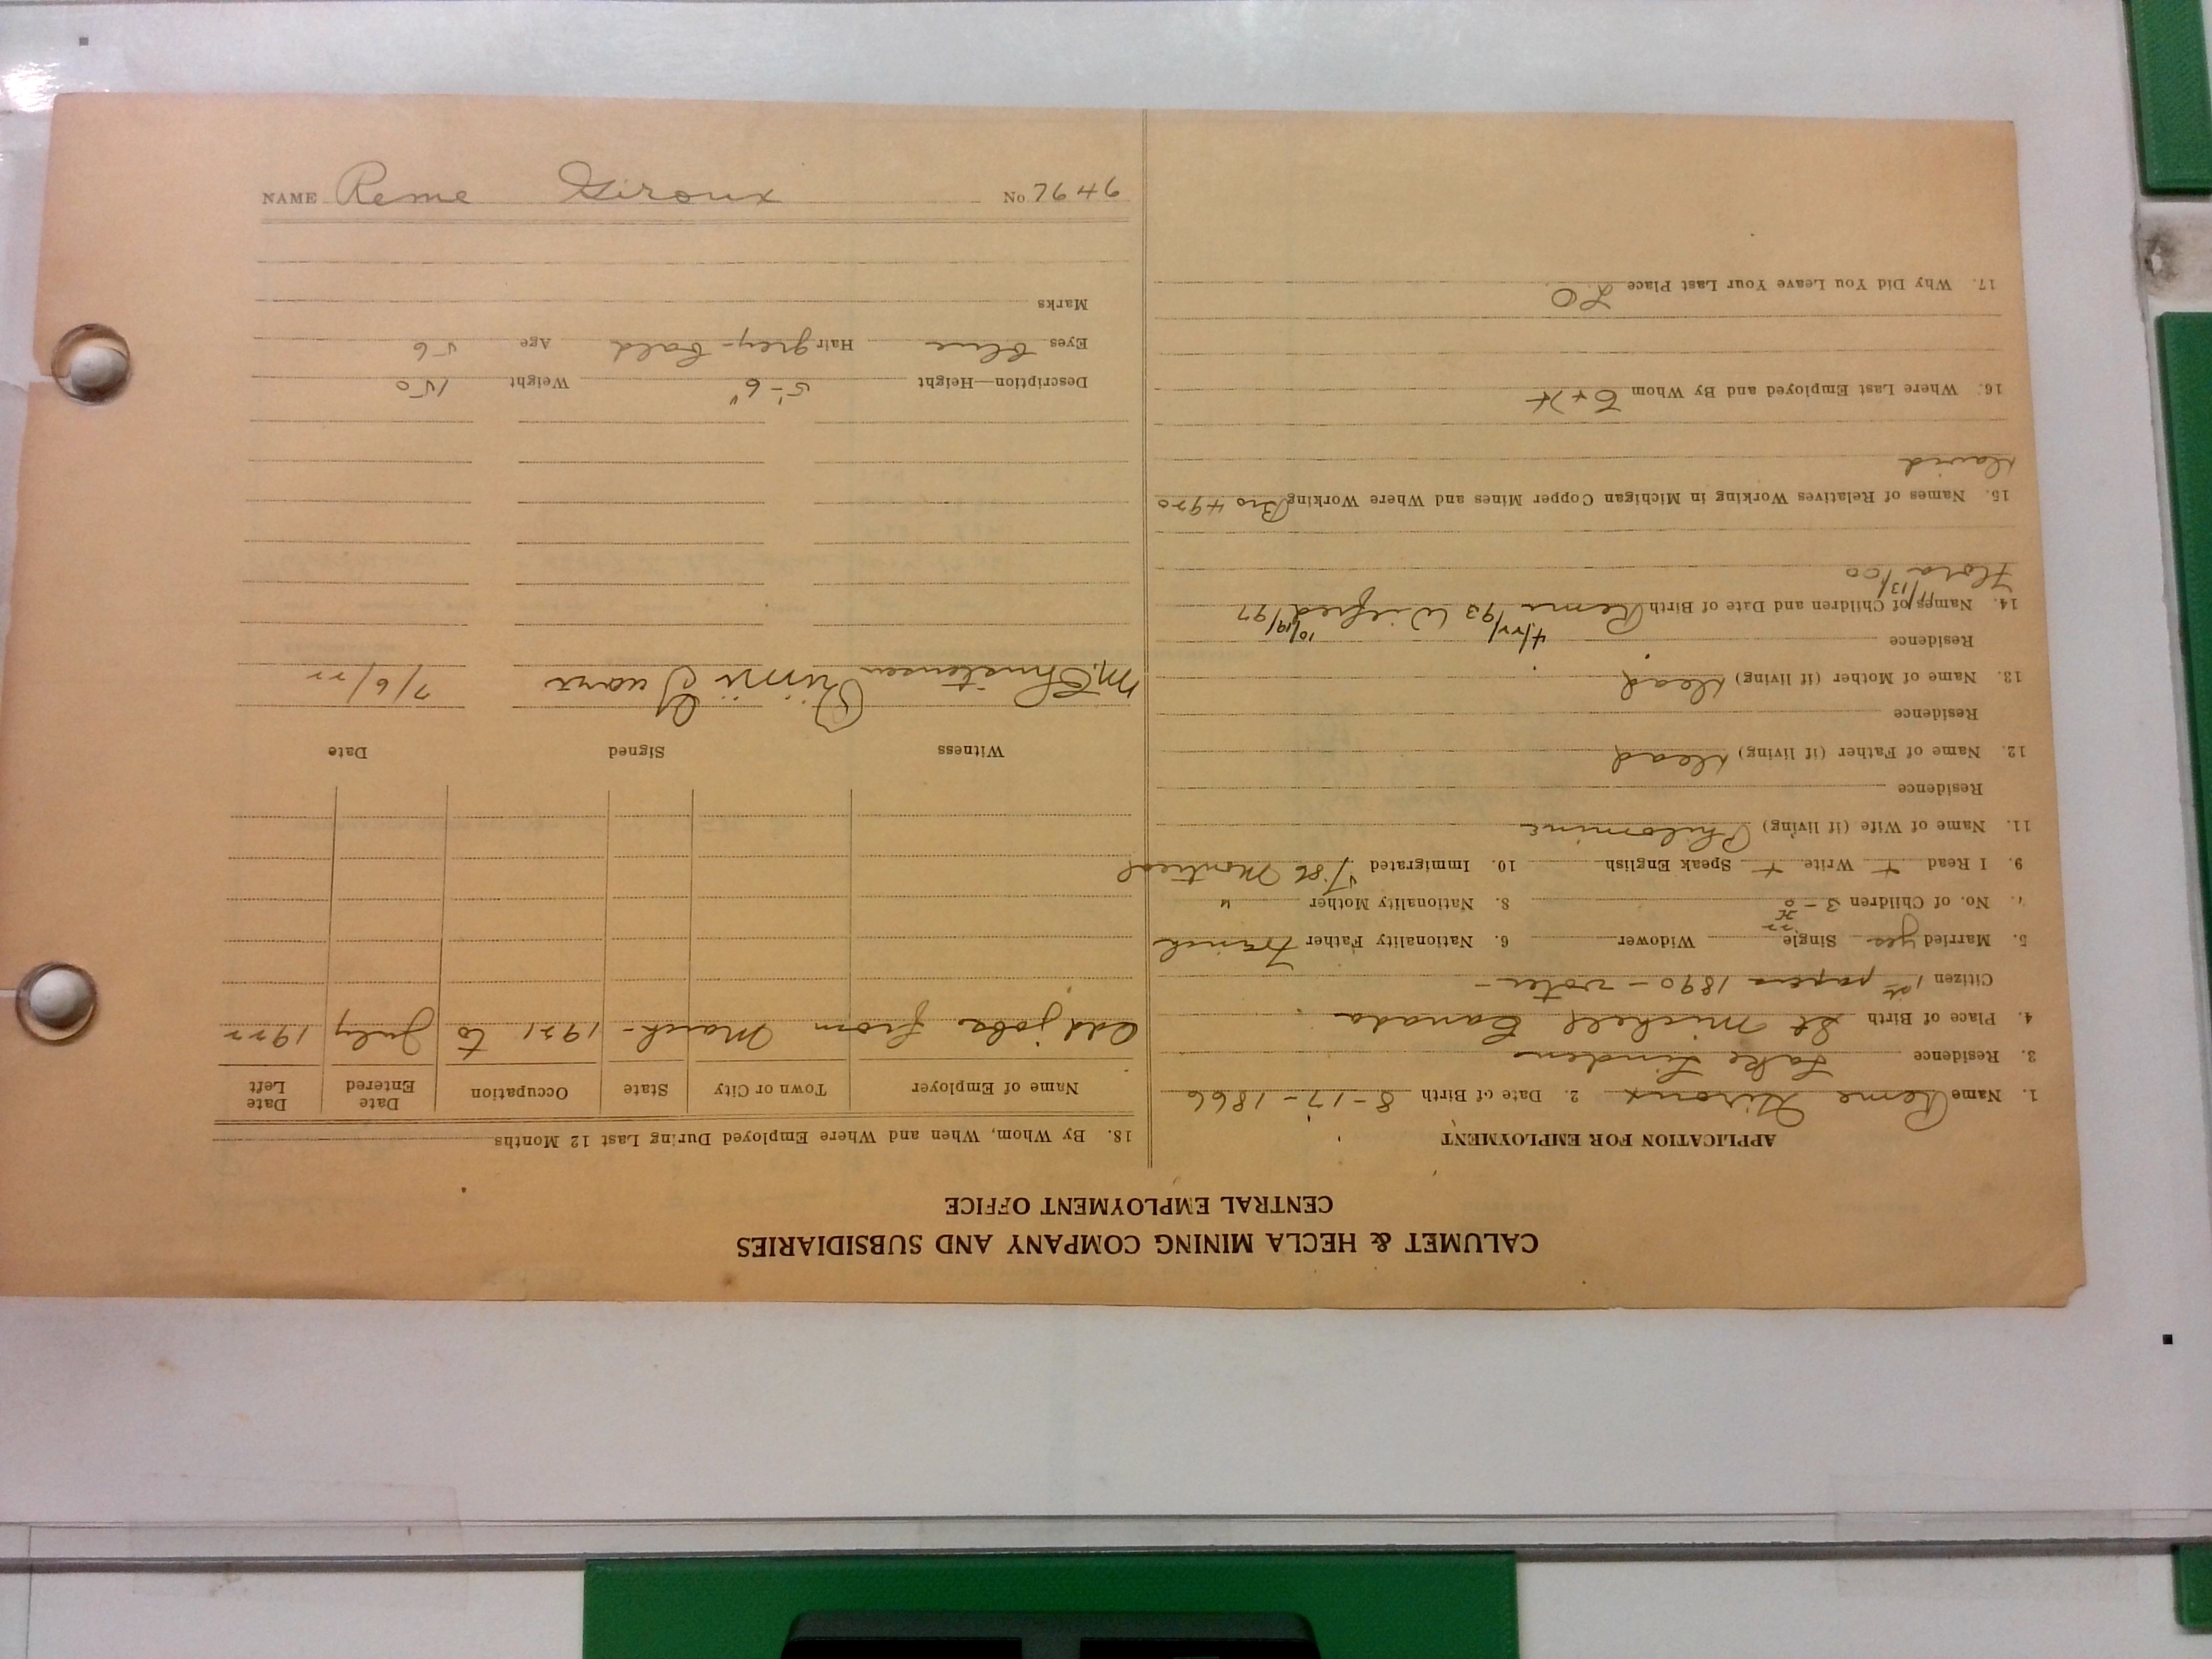 NAME Reme Giroux No 7646
CALUMET & HECLA MINING COMPANY AND SUBSIDIARIES
CENTRAL EMPLOYMENT OFFICE
APPLICATION FOR EMPLOYMENT
1. Name Reme Giroux 2. Date of Birth 8-17-1866
3. Residence Lake Linden
4. Place of Birth St Michell Canada
Citizen 1st papers 1890 - voter -
5. Married yes Single Widower 6. Nationality Father French
No. of Children 3-0 8. Nationality Mother "
9. I Read + Write + Speak English 10. Immigrated '86 Montreal
11. Name of Wife (if living) Philomine
Residence
12. Name of Father (if living) Dead
Residence
13. Name of Mother (if living) Dead
Residence
14. Names of Children and Date of Birth Reme 4/22/93 Wilfred 10/19/97
Flora 11/13/00
15. Names of Relatives Working in Michigan Copper Mines and Where Working Bro 4920
David
16. Where Last Employed and By Whom C+H
17. Why Did You Leave Your Last Place LO
18. By Whom, When and Where Employed During Last 12 Months
Name of Employer Town or City State Occupation Date Entered Date Left
Odd jobs from March - 1921 to July 1922
Witness Signed Date
M. Christensen 7/6/22
Description—Height 5'-6" Weight 150
Eyes blue Hair grey-bald Age 56
Marks